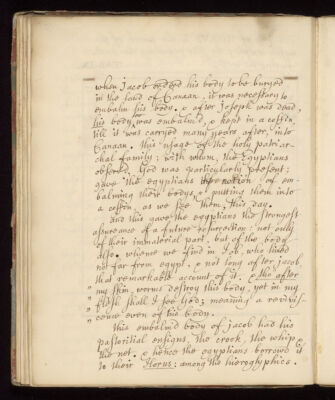 when Jacob orderd his body to be buryed
in the land of Canaan, it was necessary to
embalm his body. & after Joseph was dead,
his body was embalm'd, & kept in a coffin
till it was carryed many years after, into
Canaan. this usage of the holy patriar-
chal family; with whom, the Egyptians
observ'd, God was particularly present;
gave the egyptians the notion of em-
balming their bodys, & putting them into
a coffin, as we see them, this day.
and this gave the egyptians the strongest
assureance of a future resurrection: not only
of their immaterial part, but of the body
also. whence we find in Job, who lived
not far from egypt, & not long after jacob,
that remarkable account of it. & tho' after
" my skin, worms destroy this body, yet in my
" flesh shall I see God; meaning a revivis-
" cence even of the body.
this embalm'd body of jacob had his
pastoritial ensigns, the crook, the whip &
the net. & hence the egyptians borrowed it
to their Horus: among the hieroglyphics.